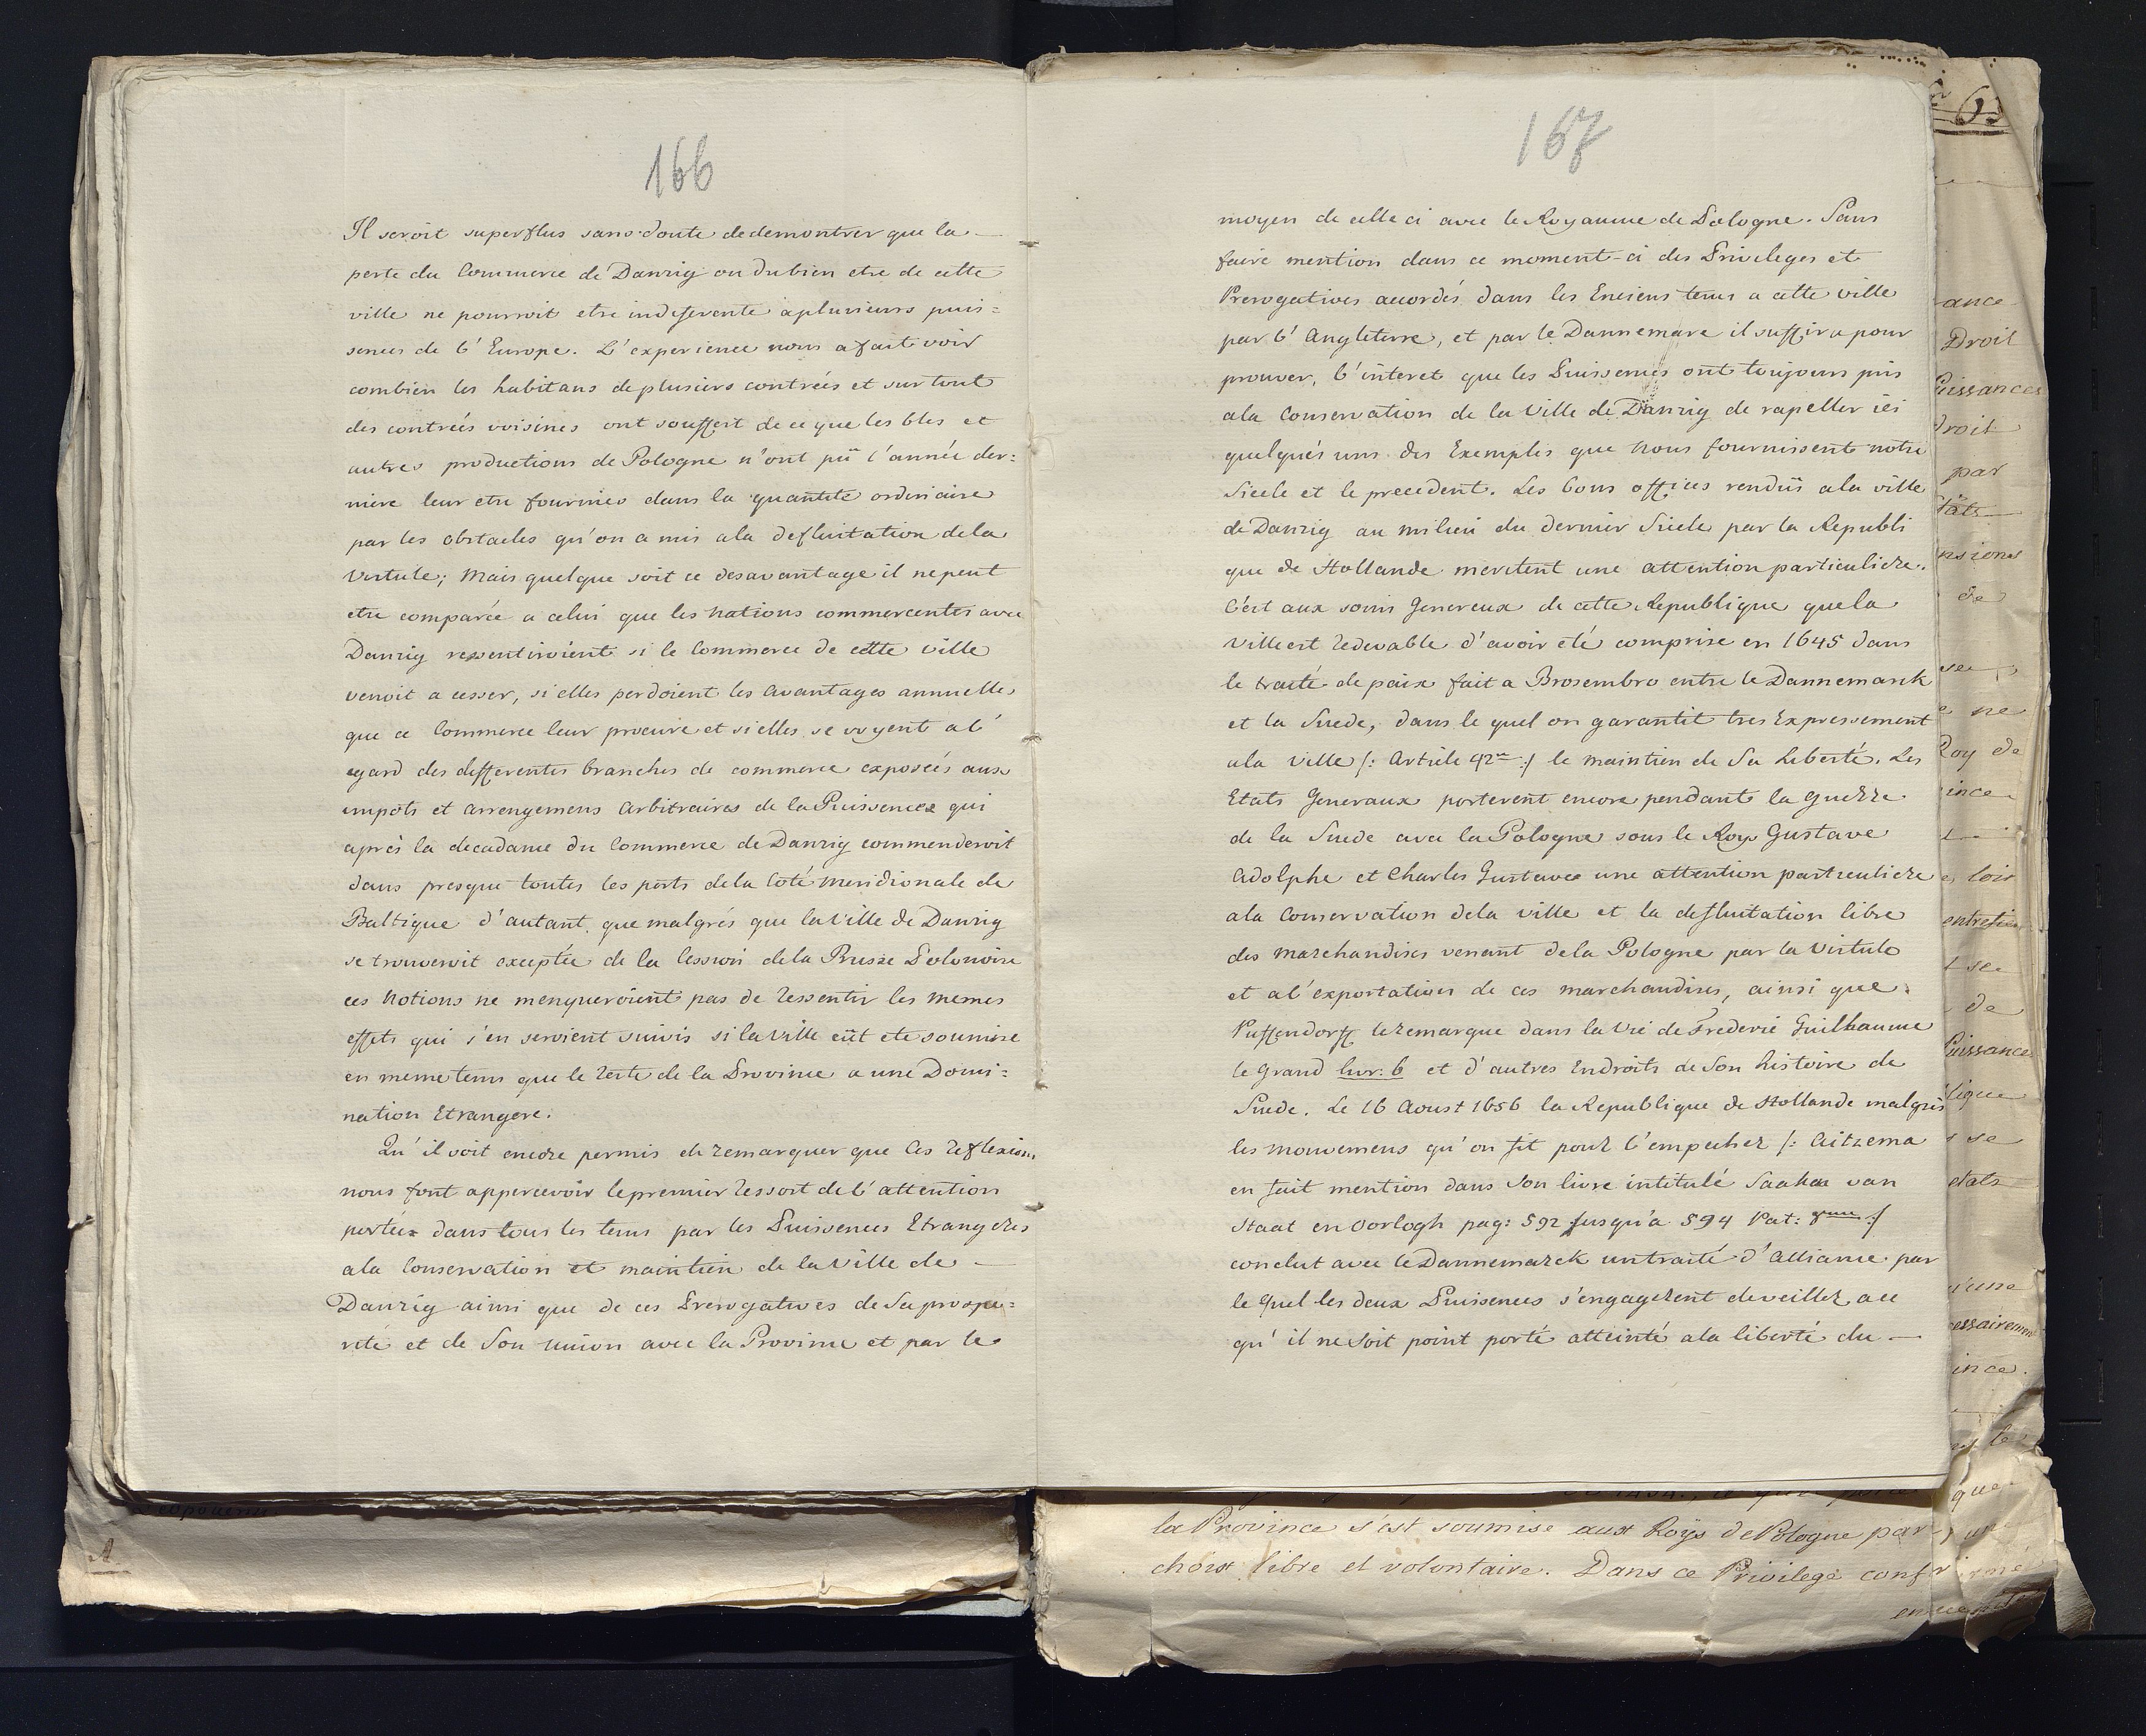 166
Il seroit superflus sans doute de demontrer que la —
perte du Commerce de Danzig ou du bien etre de cette
ville ne pourroit etre indeferente a plusieurs puis=
sences de l'Europe. L'experience nous a fait voir
combien les habitans de plusieurs contreés et sur tout
des contreés voisines ont souffert de ce que les bles et
autres productions de Pologne n'ont pü l'année der=
niere leur etre fournies dans la quantité ordinaire
par les obstacles qu'on a mis a la defluitation de la
Vistule; Mais quelque soit ce desavantage il ne peut
etre comparée a celui que les nations commercentes avec
Danzig ressentiroient si le Commerce de cette ville
venoit a cesser, si elles perdoient les avantages annuelles
que ce Commerce leur procure et si elles se voyent a l'
egard des differentes branches de commerce exposeés aux
impots et arrengemens arbitraires de la Puissences qui
aprés la decadance du Commerce de Danzig commenderoit
dans presque toutes les ports de la Coté meridionale de
Baltique d'autant, que malgrés que la Ville de Danzig
se trouveroit exceptée de la Cession de la Prusse Polonoise
ces Nations ne menqueroient pas de ressentir les memes
effets qui s'en seroient suivis si la Ville eüt ete soumise
en meme tems que le reste de la Province a une Domi=
nation Etrangere.
Qu'il soit encore permis de remarquer que Ces reflexions
nous font appercevoir le premier ressort de l'attention
portées dans tous les tems par les Puissences Etrangeres
a la Conservation et maintien de la Ville de —
Danzig ainsi que de ces Prerogatives de Sa prospe=
rité et de Son union avec la Province et par le
167
moyen de celle ci avec le Royaume de Pologne. Sans
faire mention dans ce moment-ci des Privileges et
Prerogatives accordés dans les Enciens tems a cette ville
par l'Angleterre, et par le Dannemarc il suffira pour
prouver, l'interet que les Puissences ont toujours pris
a la Conservation de la Ville de Danzig de rapeller ici
quelqués uns des Exemples que Nous fournissent notre
Siecle et le precedent. Les bons offices rendüs a la ville
de Danzig au milieu du dernier Siecle par la Republi
que de Hollande meritent une attention particuliere.
C'est aux soins Genereux de cette Republique que la
Ville est redevable d'avoir eté comprise en 1645 dans
le traité de paix fait a Brosembro entre le Dannemarck
et la Suede, dans le quel on garantit tres Expressement
a la Ville /: Article 42me :/ le maintien de Sa Liberté. Les
Etats Generaux porterent encore pendant la guerre
de la Suede avec la Pologne sous le Roys Gustave
Adolphe et Charles Gustave une attention particuliere
a la Conservation de la ville et la defluitation libre
des marchandises venant de la Pologne par la Vistule
et a l'exportation de ces marchandises, ainsi que
Puffendorff le remarque dans la Vie de Frederic Guilhaume
le Grand livr: 6 et d'autres Endroits de Son histoire de
Suede. Le 16 Aoust 1656 la Republique de Hollande malgrés
les mouvemens qu'on fit pour l'empecher /: Aitzema
en fait mention dans Son livre intitulé Saaken van
Staat en Oorlogh pag: 592 jusqu'a 594 Pat: 8me :/
conclut avec le Dannemarck un traité d'Alliance par
le quel les deux Puissences s'engagerent de veiller a ce
qu'il ne Soit point porté atteinté a la liberté du —
63
ance
Droit
Puissances
droit
par
tâts
nsions
de
se
ne
Roy de
ince
loix
entretien
se
de
Puissance
lique
se
etats
d'une
cessairement
ince.
le
que
la Province s'est soumise aux Roys de Pologne par
choix libre et volontaire. Dans ce Privilege confirmé